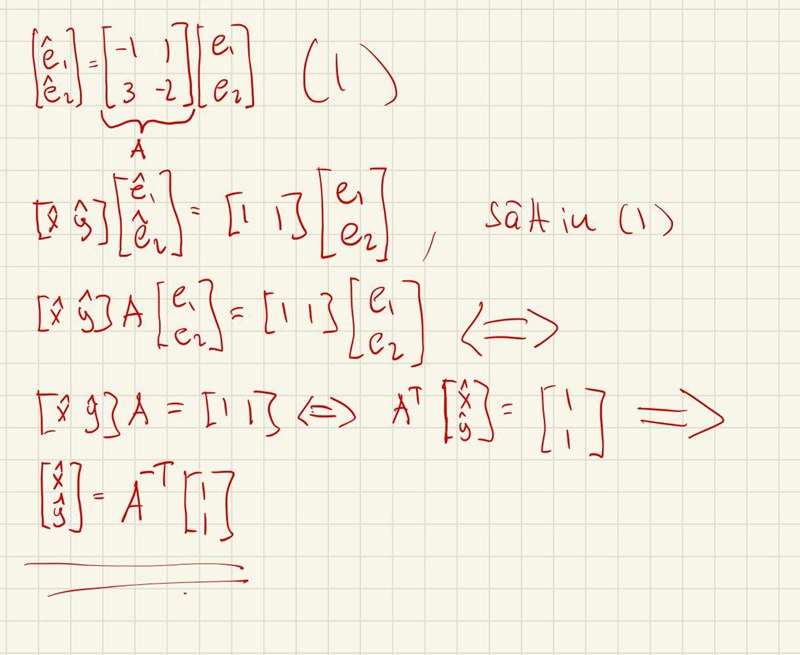 [ê₁ ê₂] = [-1 1 3 -2] [e₁ e₂] (1)
A
[x̂ ŷ] [ê₁ ê₂] = [1 1] [e₁ e₂] , sätt in (1)
[x̂ ŷ] A [e₁ e₂] = [1 1] [e₁ e₂] ⇔
[x̂ ŷ] A = [1 1] ⇔ Aᵀ [x̂ ŷ] = [1 1] ⇒
[x̂ ŷ] = A⁻ᵀ [1 1]